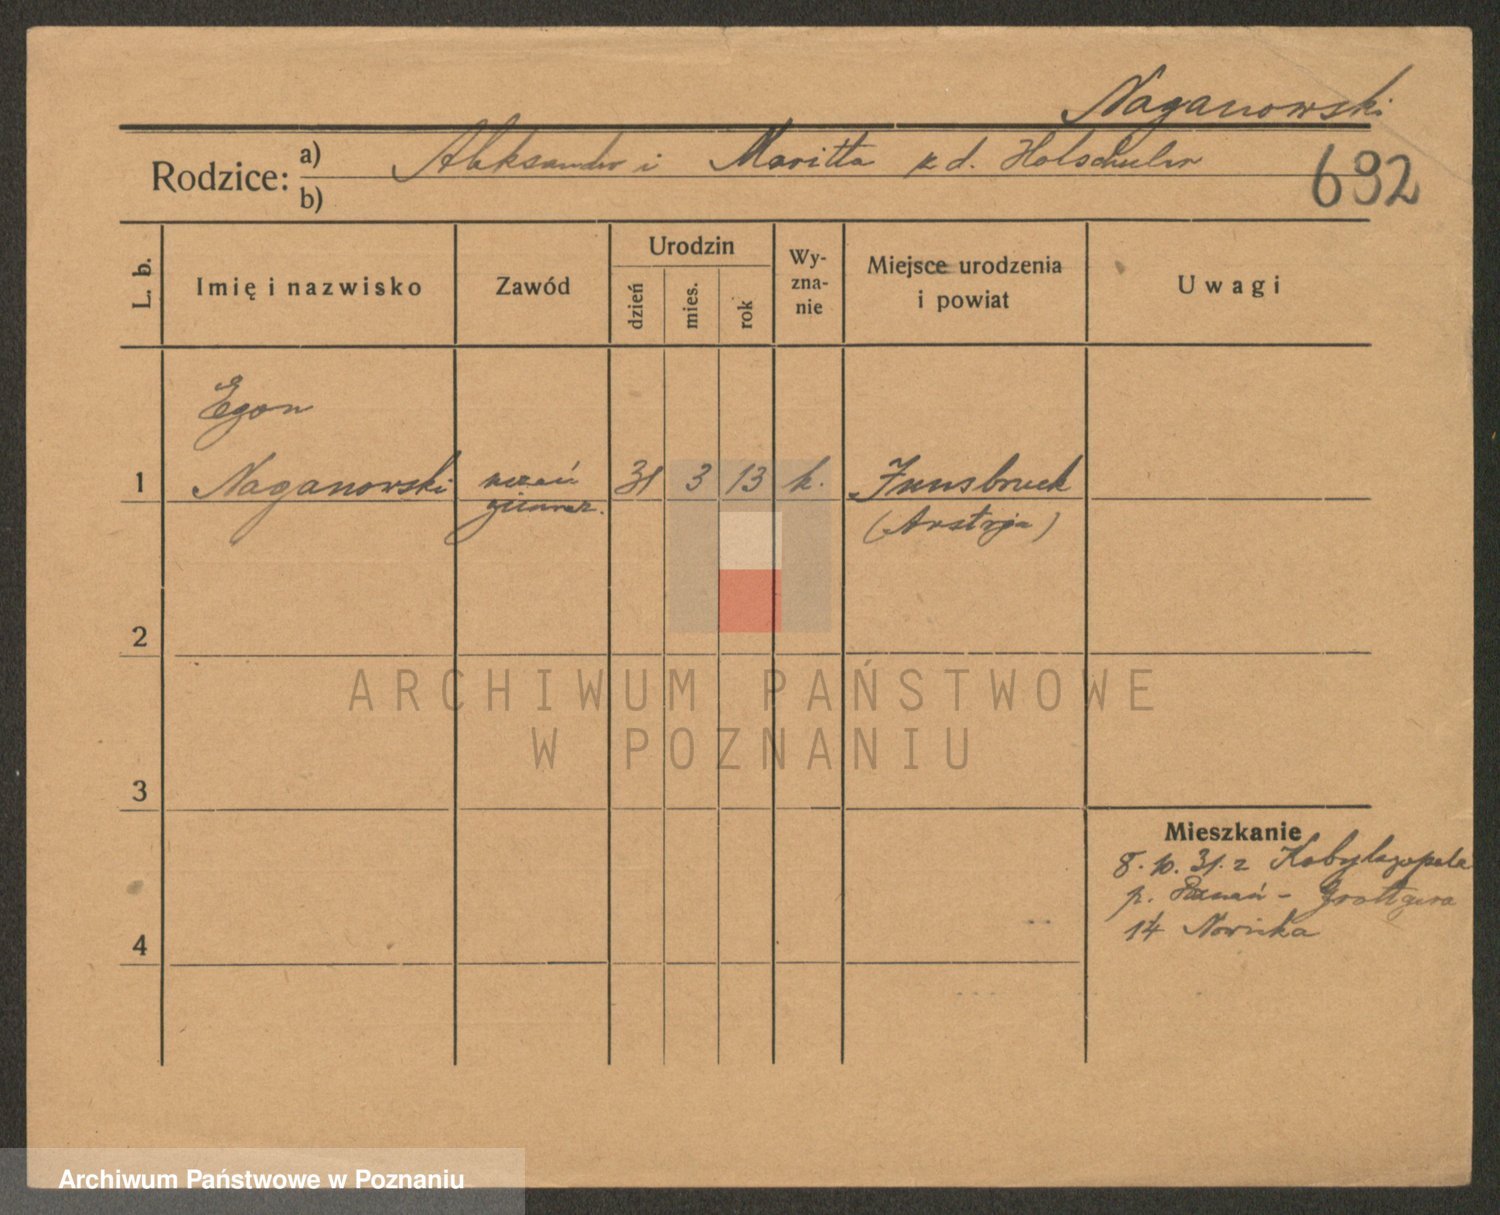 Naganowski
Rodzice: a) Aleksander i Maritta z d. Holschuher
b)
692
L. b.
Imię i nazwisko
Zawód
Urodzin
dzień
mies.
rok
Wy-
zna-
nie
Miejsce urodzenia
i powiat
Uwagi
Egon
1 Naganowski uczeń 31 3 13 k. Innsbruck
gimnaz. (Austrja)
2
3
4
ARCHIWUM PAŃSTWOWE
W POZNANIU
Mieszkanie
8.10.31. z Kobylegopola
p. Poznań - Grottgera
14 Nowicka
Archiwum Państwowe w Poznaniu